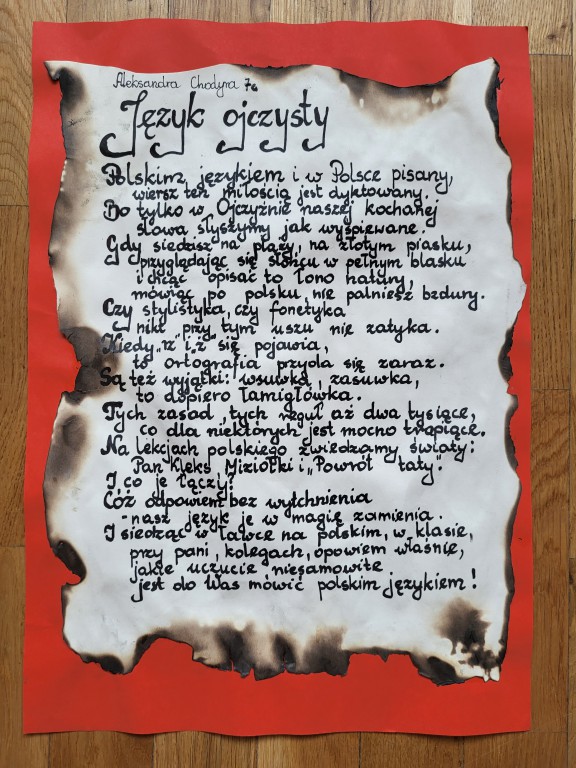 Aleksandra Chodyna 7a
Język ojczysty
Polskim językiem i w Polsce pisany,
wiersz ten miłością jest dyktowany.
Bo tylko w Ojczyźnie naszej kochanej
słowa słyszymy jak wyśpiewane.
Gdy siedzisz na plaży, na złotym piasku,
przyglądając się słońcu w pełnym blasku
i chcąc opisać to łono natury,
mówiąc po polsku, nie palniesz bzdury.
Czy stylistyka, czy fonetyka
nikt przy tym uszu nie zatyka.
Kiedy „rz" i „ż" się pojawia,
to ortografia przyda się zaraz.
Są też wyjątki: wsuwka, zasuwka,
to dopiero łamigłówka.
Tych zasad, tych reguł aż dwa tysiące,
co dla niektórych jest mocno trapiące.
Na lekcjach polskiego zwiedzamy światy:
Pan Kleks Miziołki i „Powrót taty".
I co je łączy?
Cóż odpowiem bez wytchnienia
-nasz język je w magię zamienia.
I siedząc w ławce na polskim, w klasie,
przy pani, kolegach, opowiem właśnie,
jakie uczucie niesamowite
jest do Was mówić polskim językiem!